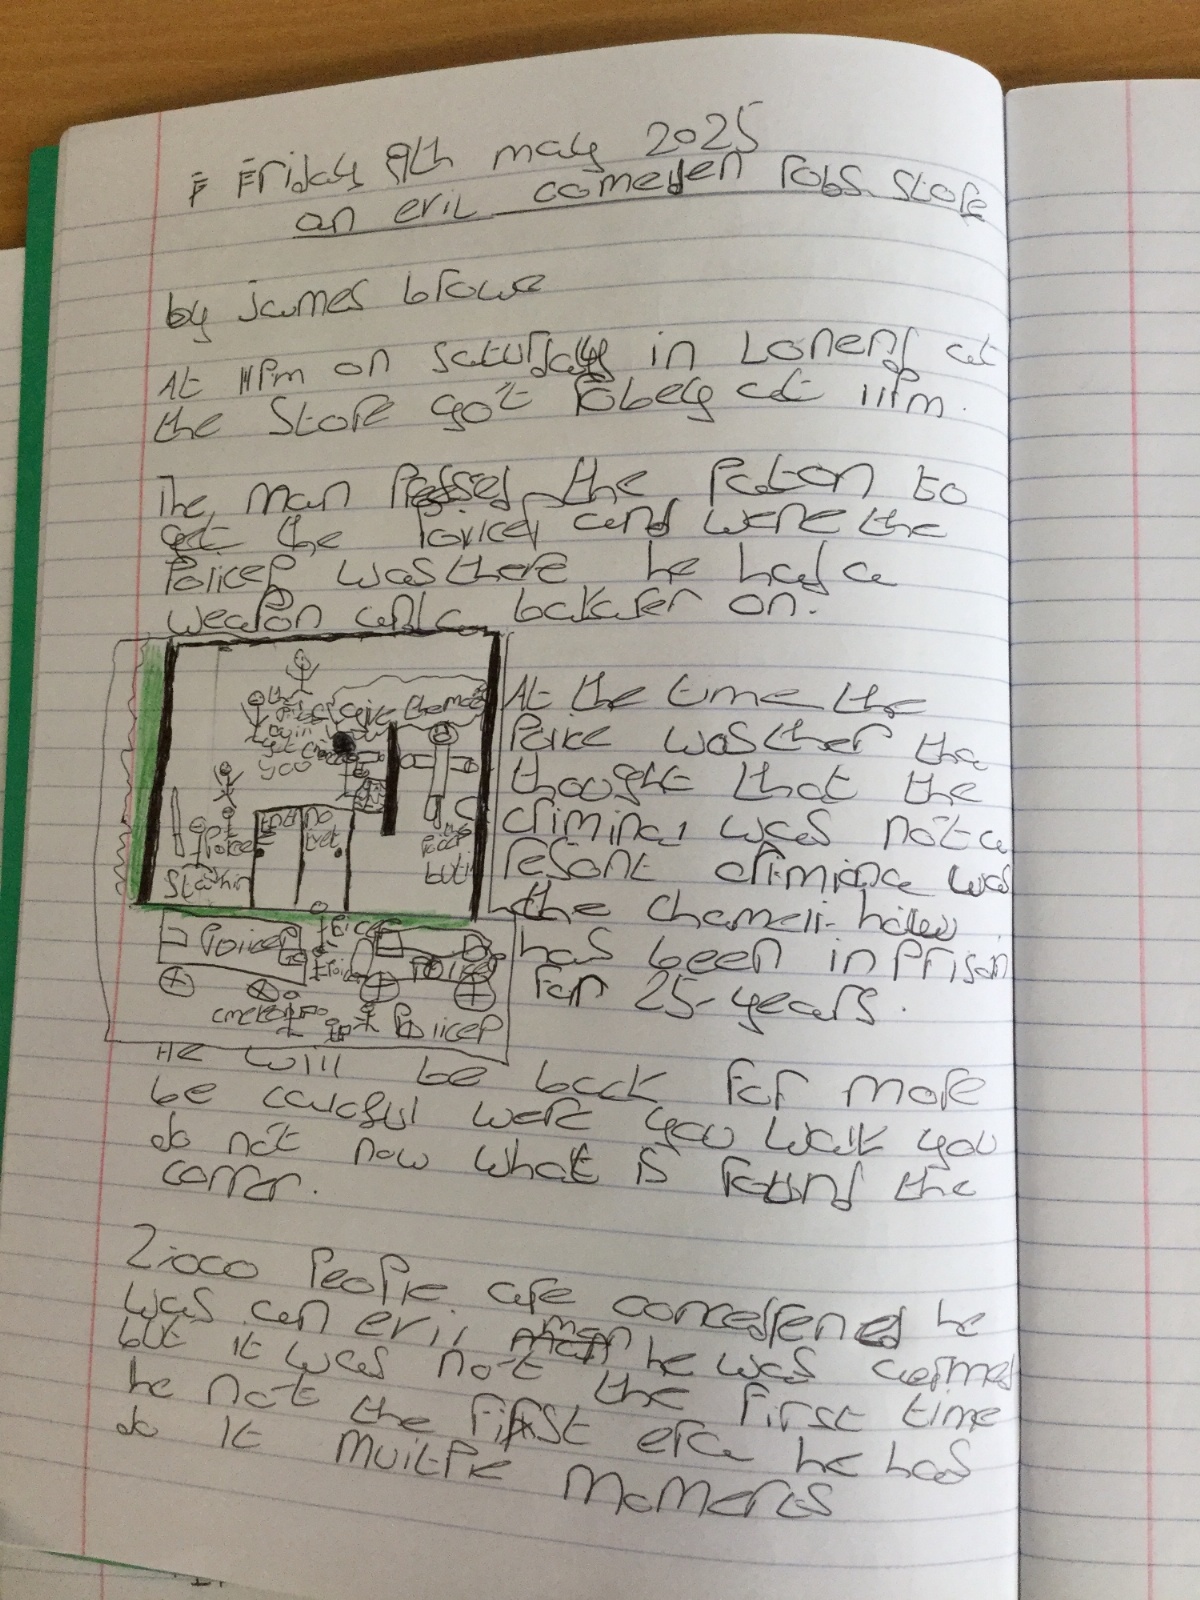 Friday 9th may 2025
an evil comedyen robs store
by james browe
At 11pm on saturdays in Lonend at
the store got robely at 11pm.
The man pressed the paton to
get the policer and were the
policer was there he had a
weapon and a bakafer on.
At the time the
police was ther the
thought that the
criminal was not a
resant crimiane was
the chameli-haiew
has been in prison
for 25-years.
give
you
Police
Policer
Police
Policer
He will be back for more
be careful were you walk you
do not now what is round the
corner.
people are concesrened he
was an evil man he was carimed
but it was not the first time
he not the first erca he has
do it muitple moments